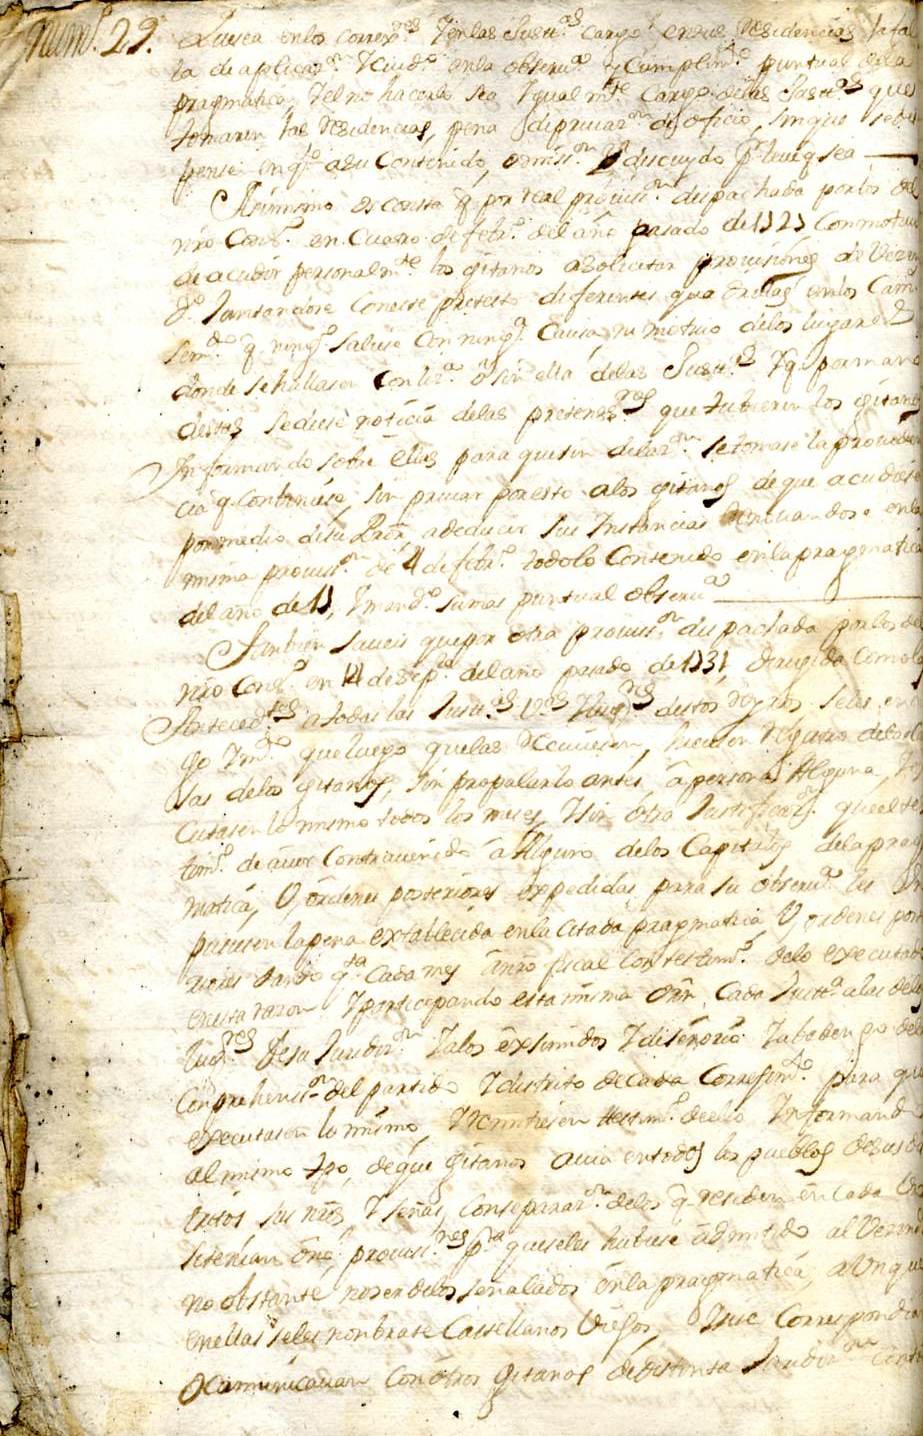 Num.º 29.
q.e sea en los correx.res Y en las Just.as cargo en sus Residencias la fal
ta de aplicaz.on Y Cuid.o en la observ.a y Cumplim.to puntual de la
pragmatica, Y el no hacerlo sea Ygualm.te Cargo de las Just.as que
tomaren las Residencias, pena de privaz.on de oficio, sin que se dis
pense en q.to a su Contenido, omis.on Y descuydo p.r leve q sea
Asimismo os consta q por real provis.on despachada por los del
nro Cons.o en Cuatro de febr.o del año pasado de 1727 Con motivo
de acudir personalm.te los gitanos a solicitar provisiones de Vezin
d.o Juntandose con este pretesto diferentes quadrillas en los Cam
q ning.o saliese con ning.a Causa, ni motivo de los lugares
donde se hallasen Con liz.a o sin ella de las Just.as Y q por mano
de estas se diese noticia de las pretens.nes que tubieren los gitanos
Informando sobre ellas para que sin dilaz.on se tomase la providen
cia q Conviniese, sin privar por esto a los gitanos de que acudiesen
por medio de su Proc.r a deducir sus Instancias en la
misma provis.on de 4 de febr.o todo lo Contenido en la pragmatica
del año de 17, Y mand.o su mas puntual observ.a
Tambien saveis que por otra provis.on despachada por los del
nro Cons.o en 14 de sep.e del año pasado de 1731, dirigida como las
Anteced.tes a todas las Just.as de estos Reynos se les en
que luego que las Reciviesen, hiciesen Registro de las ca
sas de los gitanos, sin propalarlo antes, a persona Alguna, Y exe
Cutasen lo mismo todos los meses, Y sin otra Justificaz.on que el tes
tim.o de aver Contravenido a Alguno de los Capitulos de la prag
matica, U, ordenes posteriores expedidas, para su observ.a les Im
pusiesen la pena extablecida en la citada pragmatica, U, ordenes poste
riores dando q.ta Cada mes a nro fiscal Con testim.o de lo executado
en esta razon Y participando esta misma orn Cada Just.a a las de los
lug.res de su Jurisdiz.on Y a los eximidos Y de señorio Y abadengo de la
Conprehens.on del partido Y distrito de cada Corregim.to para que
executasen lo mismo, Y Remitiesen testim.o de ello Informando
al mismo tpo, de que gitanos avia en todos los pueblos de su dis
tritos, sus nres, Y señas, Con separaz.on de los q residen en Cada Uno
si tenian provis.nes p.a que se les hubiese admitido al Vezind
no obstante, no ser de los señalados en la pragmatica, aUnque
en ellas se les nonbrase Castellanos Viejos, Y si se Correspondian
o Comunicavan Con otros gitanos de distinta Jurisdiz.on